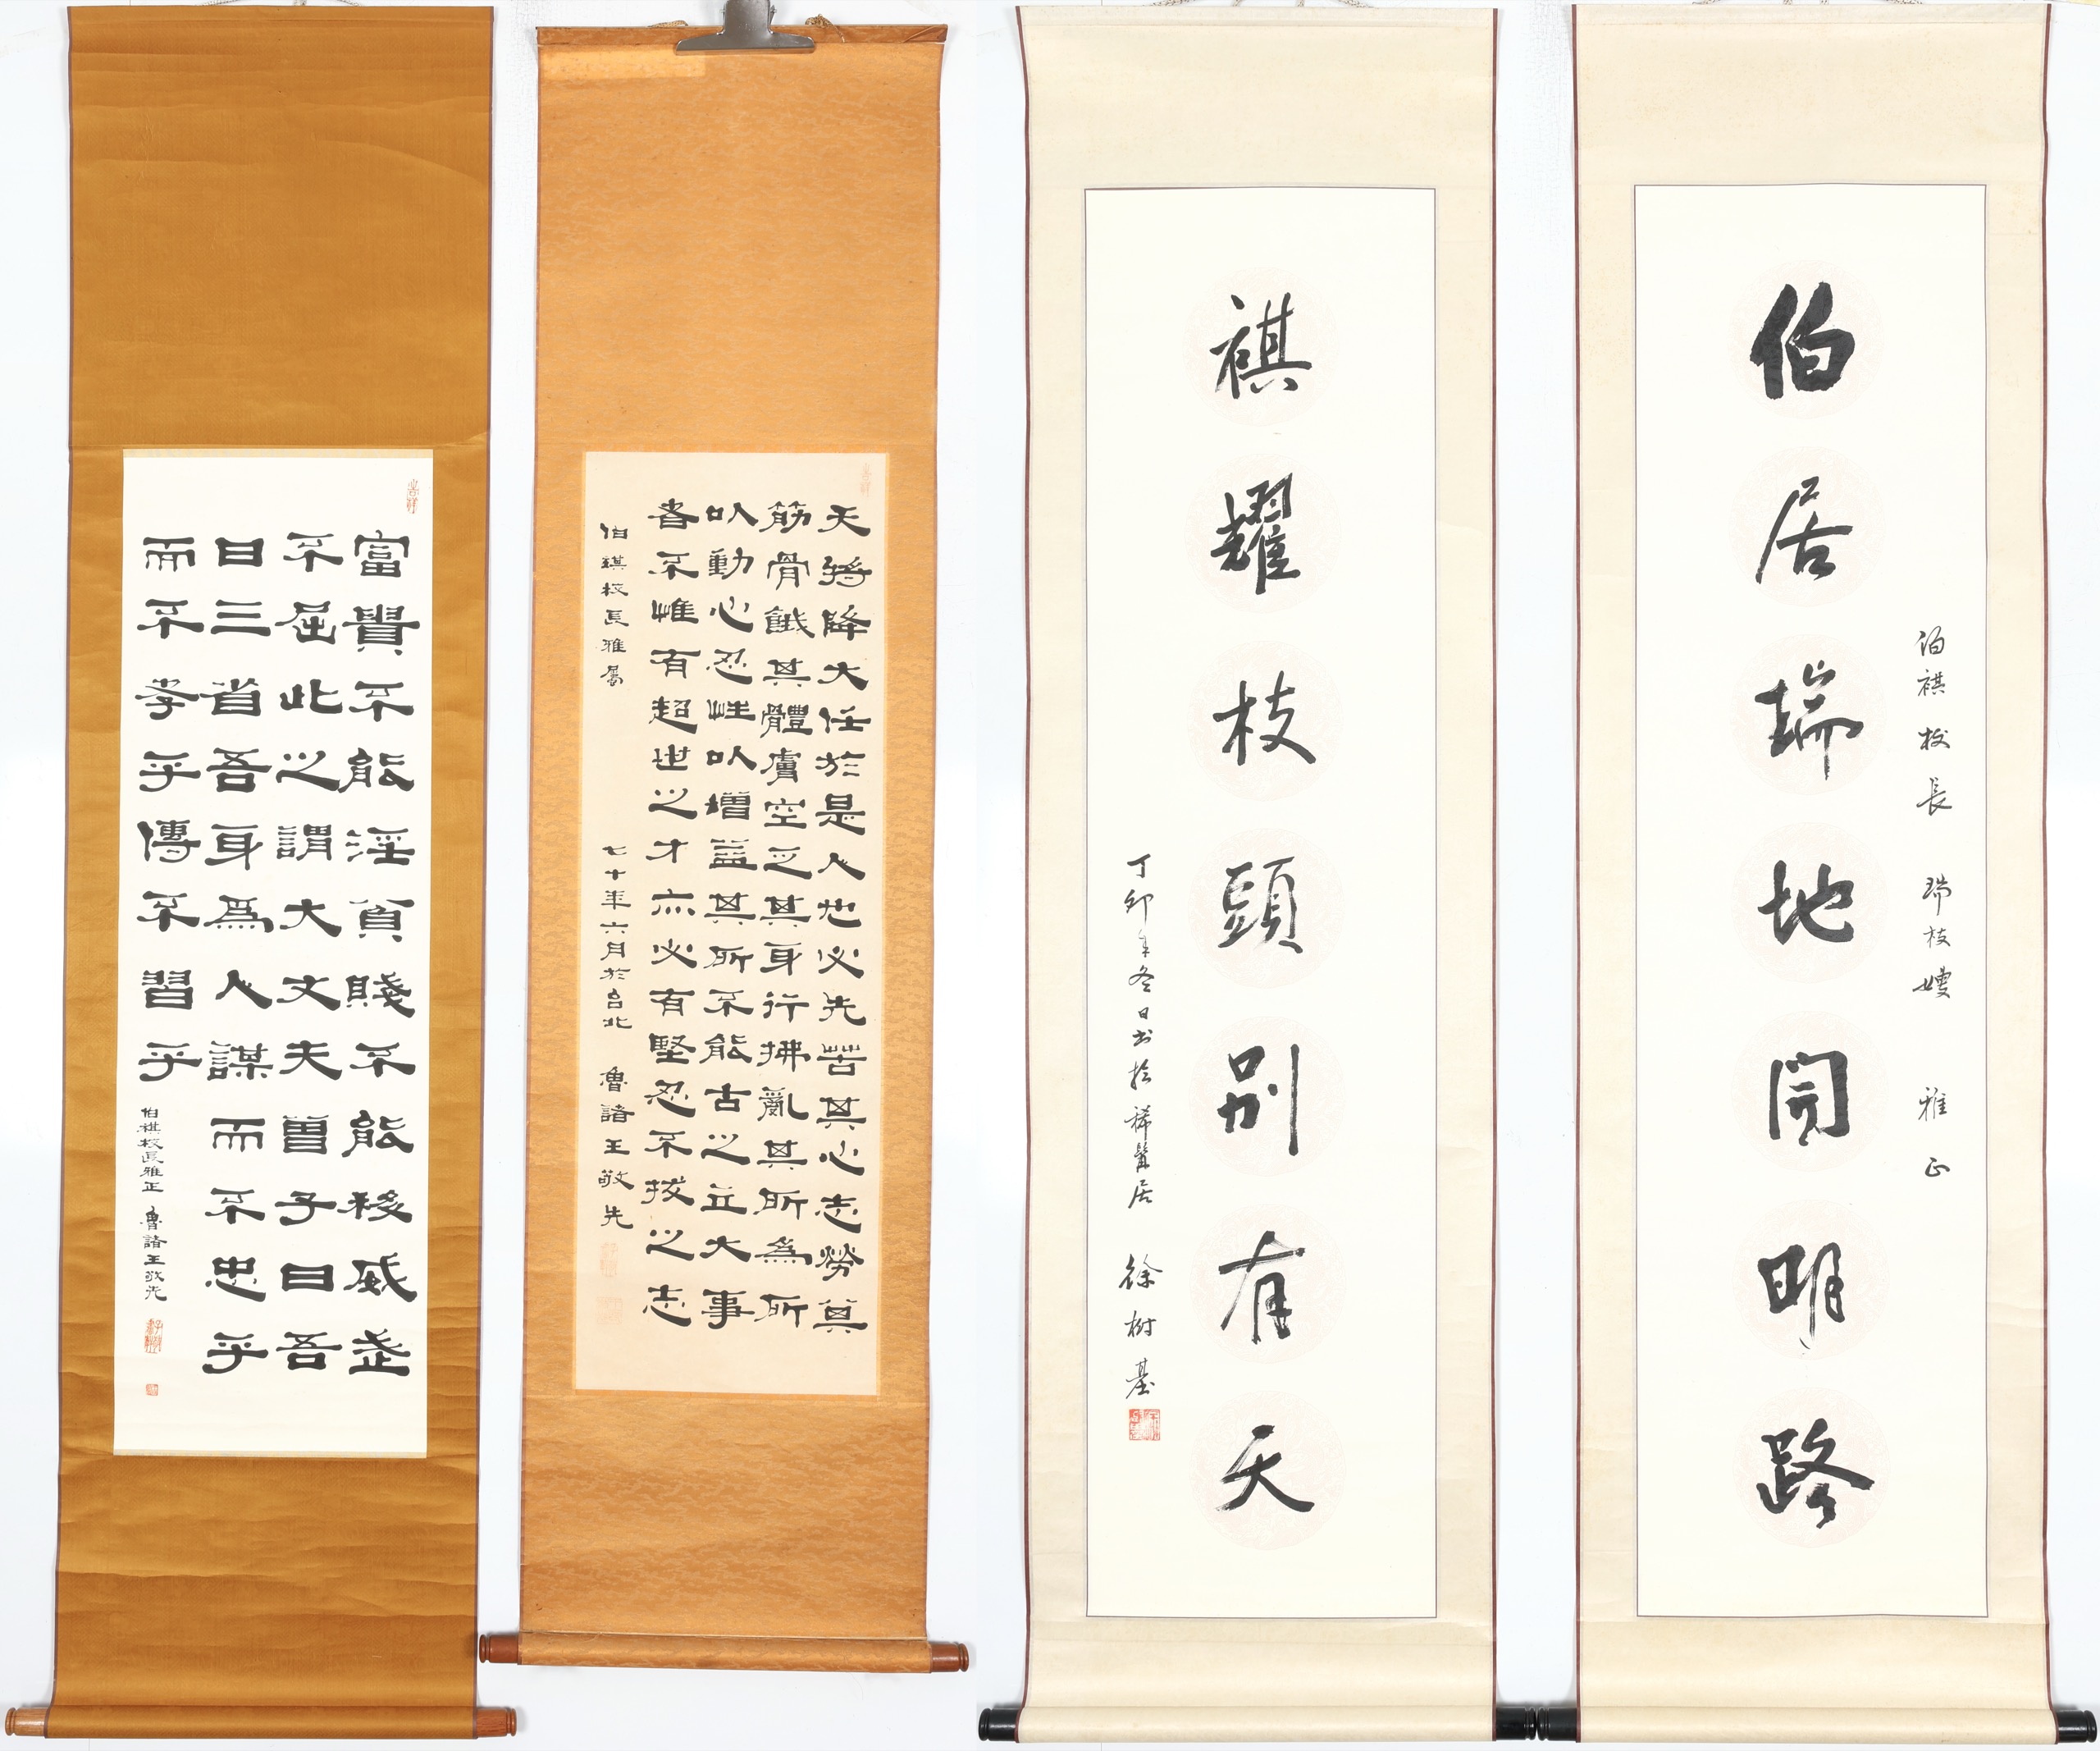 伯祺校長 瑞枝嫂 雅正
伯居瑞地開明路
祺耀枝頭別有天
丁卯年冬日書於稀鬢居 徐樹基
天將降大任於是人也必先苦其心志勞其
筋骨餓其體膚空乏其身行拂亂其所為所
以動心忍性以增益其所不能古之立大事
者不惟有超世之才亦必有堅忍不拔之志
伯祺校長雅屬 七十年六月於台北 魯諸王敬先
富貴不能淫貧賤不能移威武
不屈此之謂大丈夫曾子曰吾
日三省吾身為人謀而不忠乎
而不孝乎傳不習乎
伯祺校長雅正 魯諸王敬先